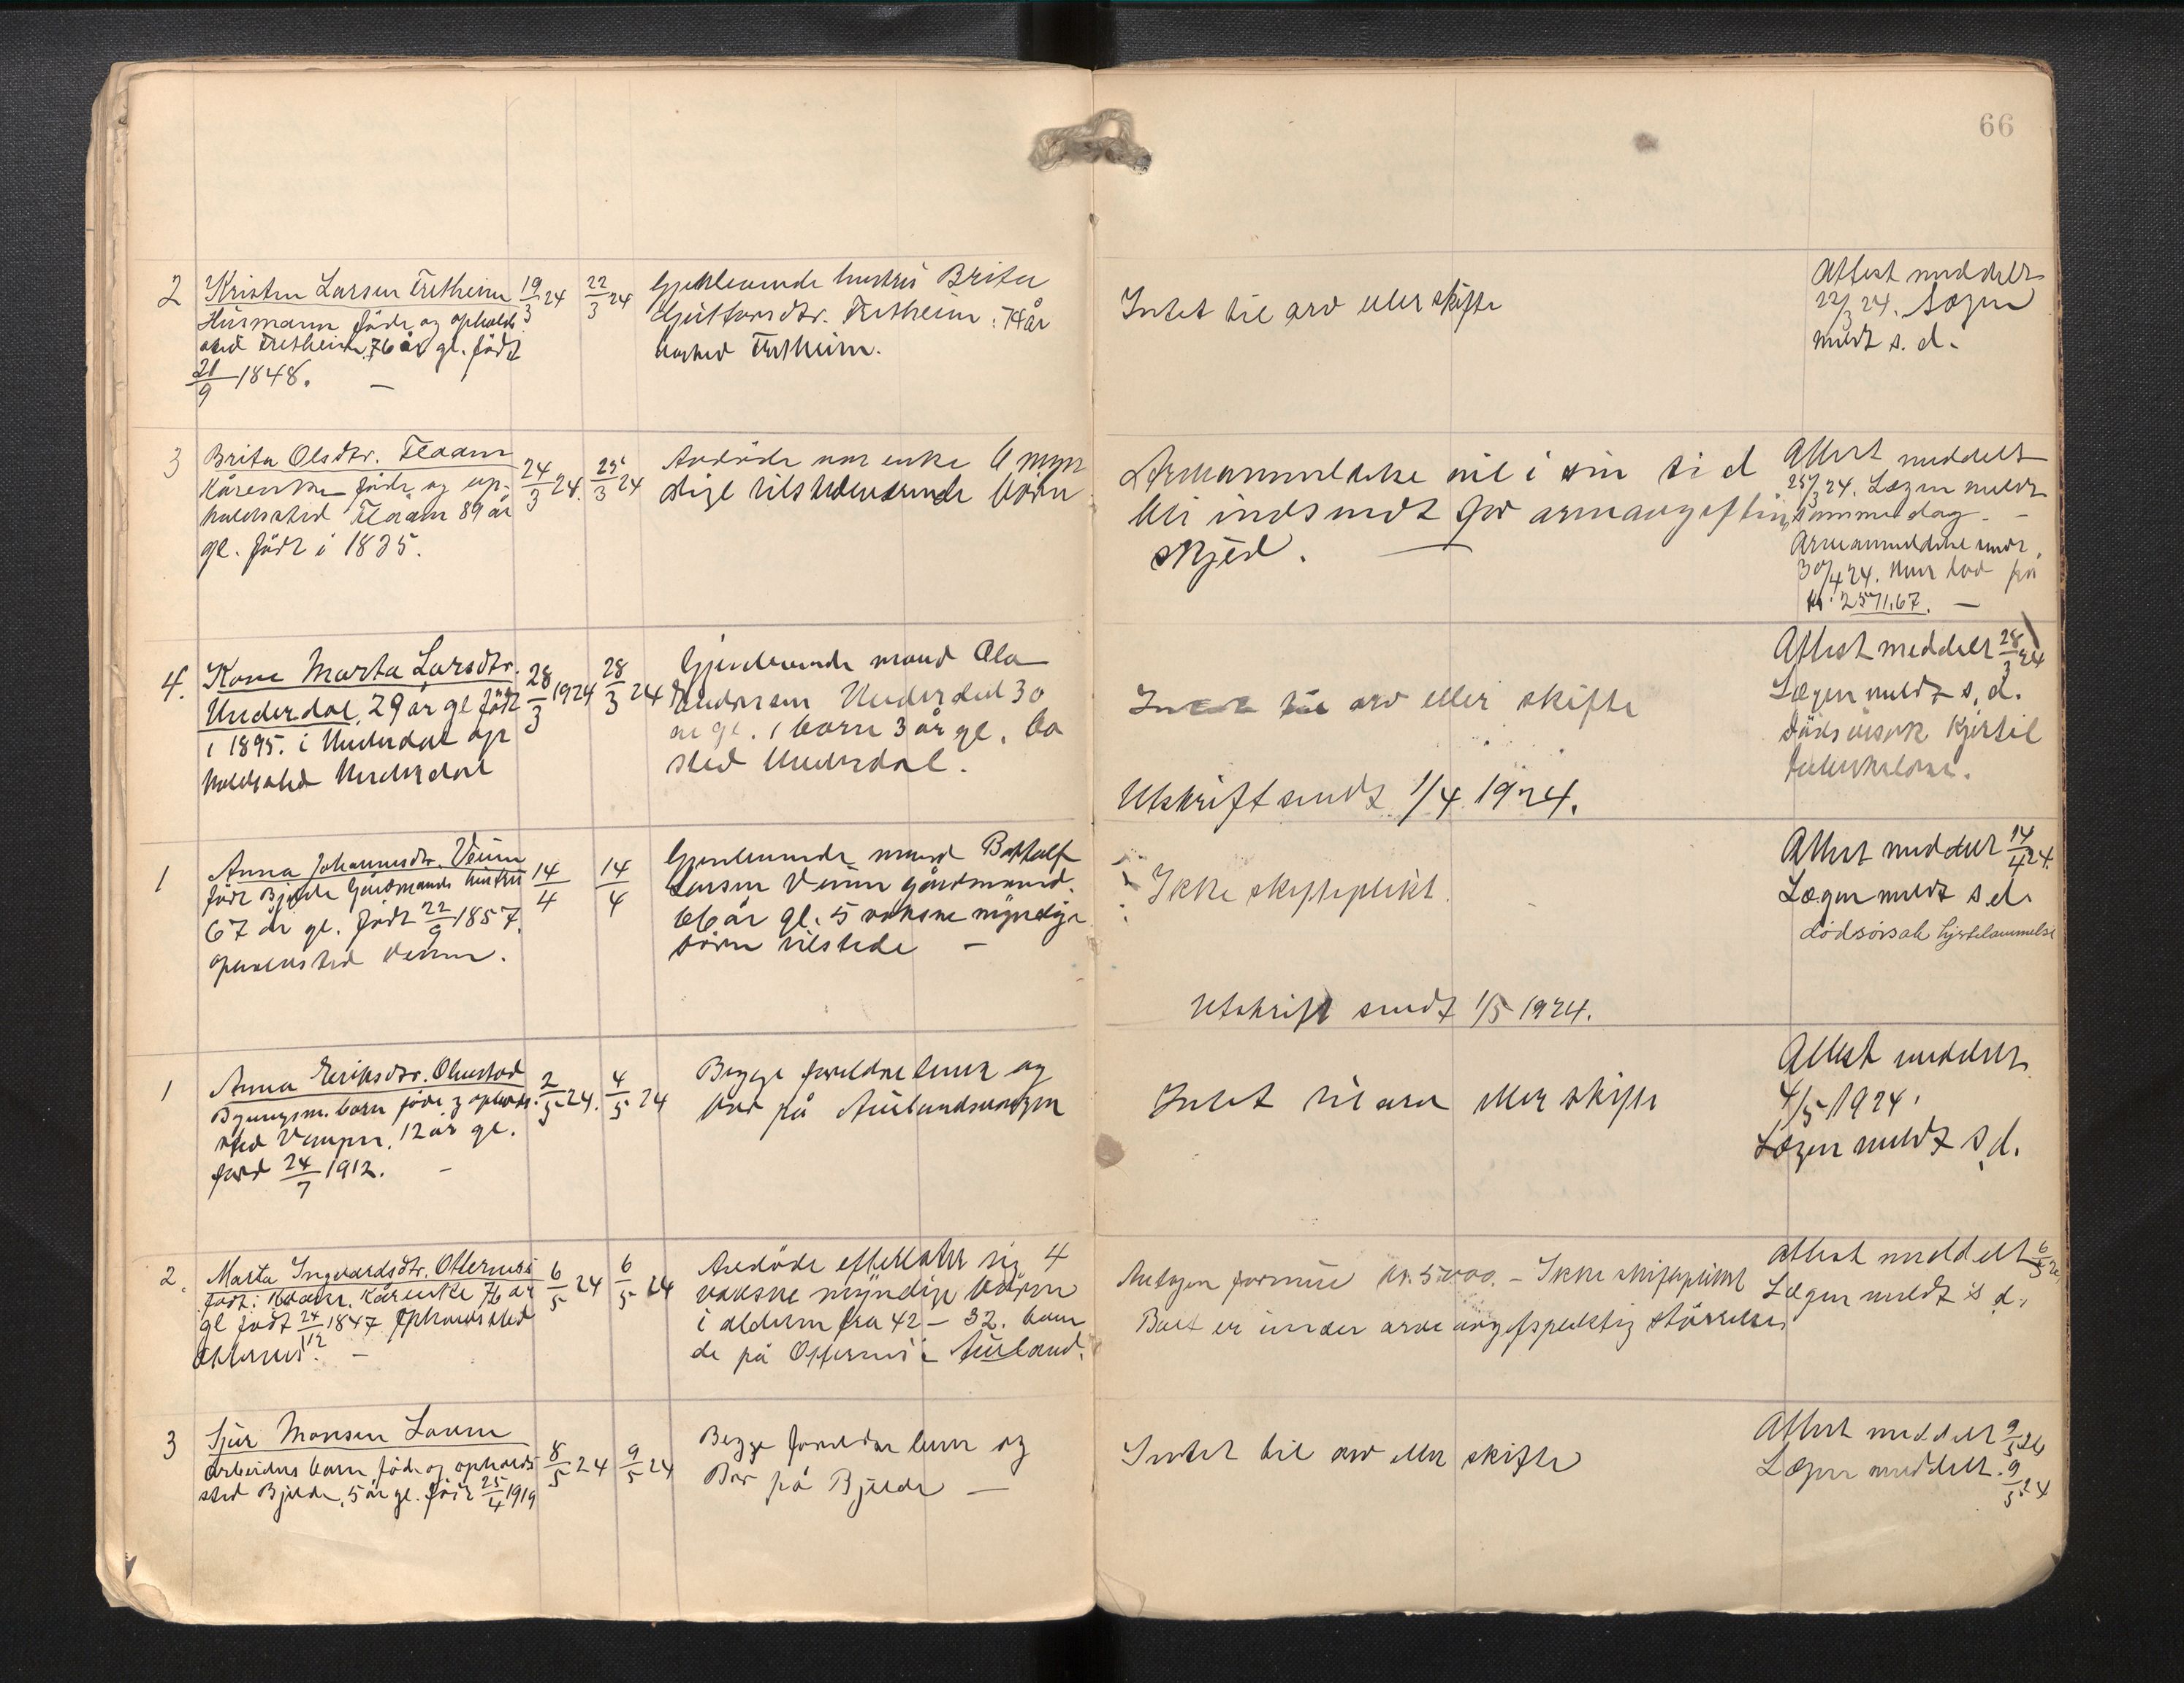 66
2
Kristen Larsen Fretheim
Husmann föde og opholds
sted Fretheim, 76 år gl. född
21/9 1848. —
19/3 24
22/3 24
Gjenlevende hustru Brita
Gjutformsdtr. Fretheim: 74 år
bosted Fretheim.
Intet til arv eller skifte
Attest meddelt
22/3 24. Lægen
meldt s. d.
3
Brita Olsdtr. Flaam
Kårenke föde og op-
holdssted Flaam 89 år
gl. födt i 1835.
24/3 24.
25/3 24
Avdöde var enke 6 myn
dige tilstedeværende börn
Arveanmeldelse vil i sin tid
bli indsendt for arveavgiftens
skjed. —
Attest meddelt
25/3 24. Lægen meldt
samme dag. —
Arveanmeldelse sendt
30/4 24. Netto bod på
kr. 2571.67. —
4.
Kone Marta Larsdtr.
Underdal, 29 år gl född
i 1895. i Underdal op
holdssted Underdal
28/3 1924
28/3 24
Gjenlevende mand Ola
Andersen Underdal 30
år gl. 1 barn 3 år gl. bo
sted Underdal.
Intet til arv eller skifte
Utskrift sendt 1/4 1924.
Attest meddelt 28/3 24
Lægen meldt s. d.
dödsårsak Kjertel
tuberkelose.
1
Anna Johannesdtr. Veum
födt Bjelde Gårdmands hustru
67 år gl. födt 22/9 1857.
opholdssted Veum.
14/4
14/4
Gjenlevende mand Botholf
Larsen Veum gårdmand.
66 år gl. 5 voksne myndige
börn tilstede —
Ikke skifteplikt.
Utskrift sendt 1/5 1924.
Attest meddelt 14/4 24.
Lægen meldt s d.
dödsårsak hjertelammelse
1
Anna Eriksdtr. Olnestad
Bygningsm. barn föde og opholds.
sted Vangen. 12 år gl.
förd 24/7 1912. —
2/5 24.
4/5 24
Begge foreldre lever og
bor på Aurlandsvangen
Intet til arv eller skifte
Attest meddelt
4/5 1924.
Lægen meldt s. d.
2.
Marta Ingvardsdtr. Otternes
födt: Flaam. Kårenke 76 år
gl födt 24/12 1847 Opholdssted
Otternes. —
6/5 24
6/5 24
Avdöde efterlater sig 4
voksne myndige börn
i alderen fra 42 – 32. boen
de på Otternes i Aurland.
Antagen formue kr. 5000. – Ikke skifteplikt
Boet er under arveavgiftspliktig störrelse.
Attest meddelt 6/5 24
Lægen meldt s. d.
3
Sjur Monsen Lavem
Arbeiders barn föde og opholds
sted Bjelde, 5 år gl. född 25/4 1919
8/5 24
9/5 24
Begge foreldre lever og
Bor på Bjelde —
Intet til arv eller skifte
Attest meddelt 9/5 24
Lægen meddelt. 9/5 24